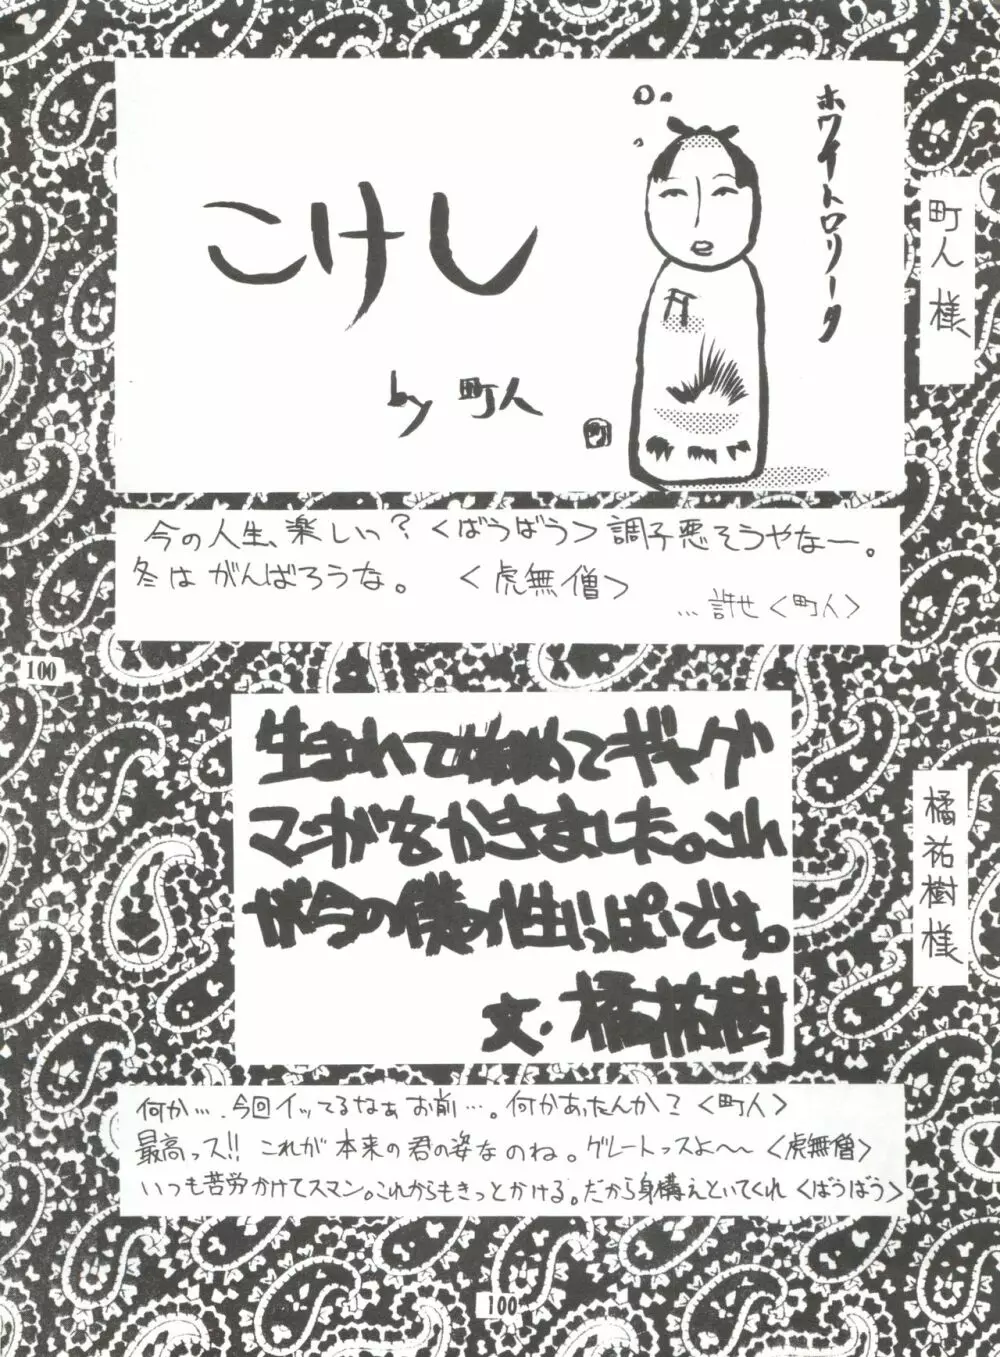 町人様
ホワイトロリータ
こけし
by 町人
町
今の人生、楽しいっ?〈ばうばう〉調子悪そうやなー。
冬はがんばろうな。 〈虎無僧〉
…許せ〈町人〉
100
橘祐樹様
生まれて初めてギャグ
マンガをかけました。
の僕っぽいです。
文・橘祐樹
何か…、今回イッてるなぁお前…。何かあったんか?〈町人〉
最高っス!! これが本来の君の姿なのね。グレートっスよ〜〈虎無僧〉
いつも苦労かけてスマン。これからもきっとかける。だから身構えといてくれ〈ばうばう〉
100